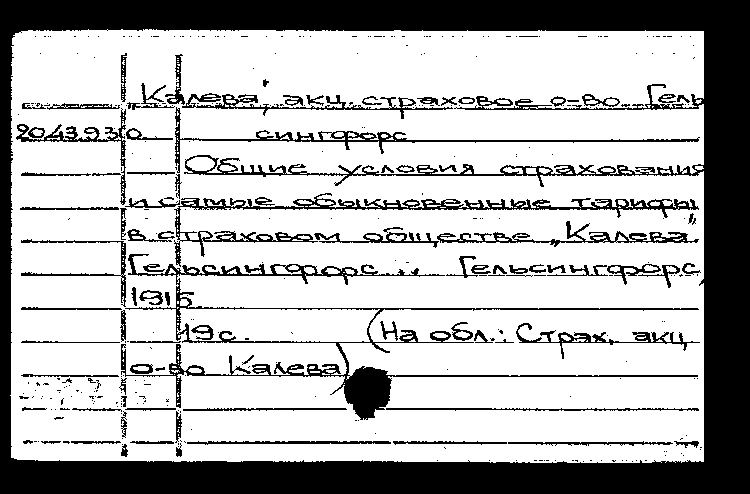 „Калева", акц. страховое о-во. Гель
2043930 сингфорс.
Общие условия страхования
и самые обыкновенные тарифы
в страховом обществе „Калева".
Гельсингфорс... Гельсингфорс,
1915.
19 с. (На обл.: Страх. акц.
о-во Калева)